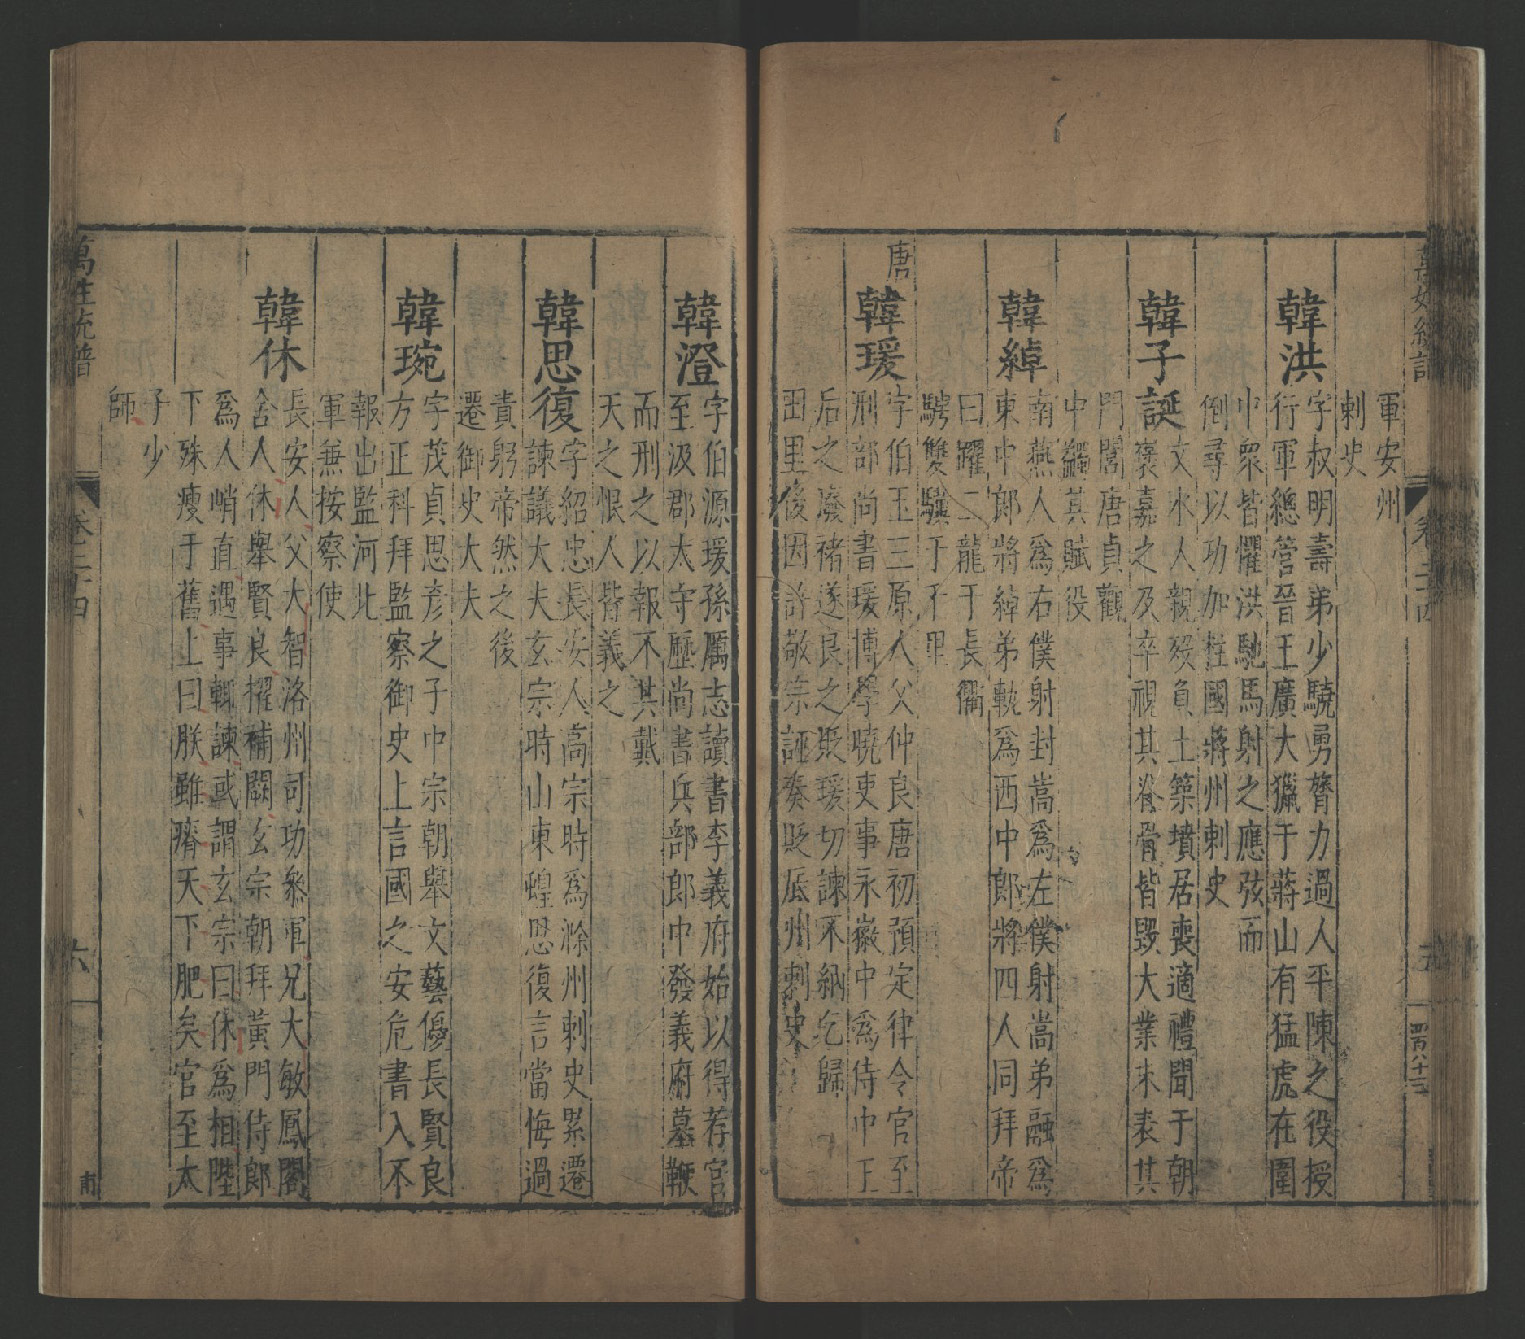 軍安州
刺史
韓洪
字叔明壽弟少驍勇膂力過人平陳之役授
行軍總管晉王廣大獵于蔣山有猛虎在圍
中眾皆懼洪馳馬射之應弦而
倒尋以功加柱國蔣州刺史
韓子誕
文水人親歿負土築墳居喪適禮聞于朝
褒嘉之及卒視其脊骨皆毀大業末表其
門閭唐貞觀
中蠲其賦役
韓綽
南燕人爲右僕射封嵩爲左僕射嵩弟融爲
東中郎將綽弟軌爲西中郎將四人同拜帝
曰躍二龍于長衢
騁雙驥于千里
唐
韓瑗
字伯玉三原人父仲良唐初預定律令官至
刑部尚書瑗博學曉吏事永徽中爲侍中王
后之廢褚遂良之貶瑗切諫不納乞歸
田里後因許敬宗誣奏貶厎州刺史
韓澄
字伯源瑗孫厲志讀書李義府始以得荐官
至汲郡太守歷尚書兵部郎中發義府墓鞭
而刑之以報不共戴
天之恨人皆義之
韓思復
字紹忠長安人高宗時爲滁州刺史累遷
諫議大夫玄宗時山東蝗思復言當悔過
責躬帝然之後
遷御史大夫
韓琬
字茂貞思彥之子中宗朝舉文藝優長賢良
方正科拜監察御史上言國之安危書入不
報出監河北
軍兼按察使
韓休
長安人父大智洛州司功參軍兄大敏鳳閣
舍人休舉賢良擢補闕玄宗朝拜黃門侍郎
爲人峭直遇事輒諫或謂玄宗曰休爲相陛
下殊瘦于舊上曰朕雖瘠天下肥矣官至太
子少
師
萬姓統譜
卷二十四
六
南